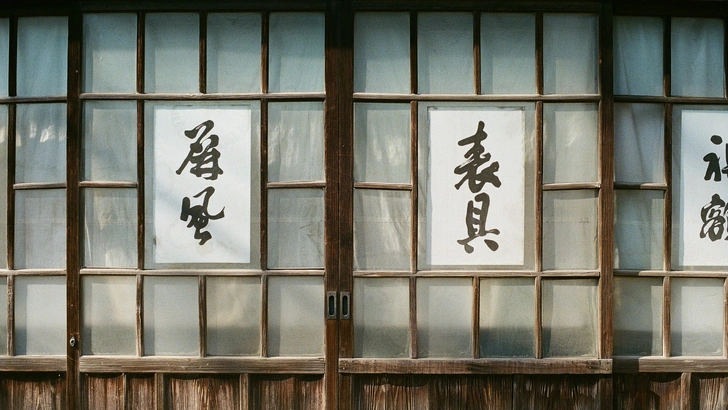 屏風
表具